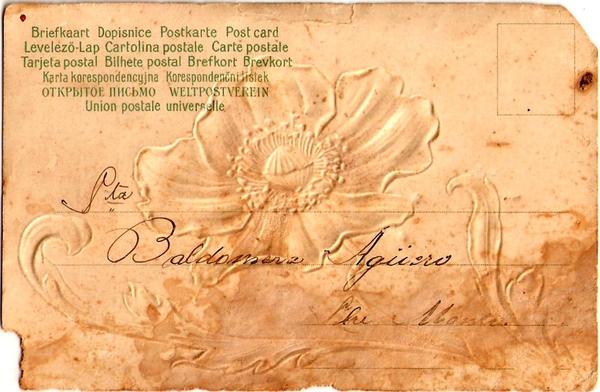 Briefkaart Dopisnice Postkarte Post card
Levelező-Lap Cartolina postale Carte postale
Tarjeta postal Bilhete postal Brefkort Brevkort
Karta korespondencyjna Korespondenční lístek
ОТКРЫТОЕ ПИСЬМО WELTPOSTVEREIN
Union postale universelle
Sta
Baldomera Agüero